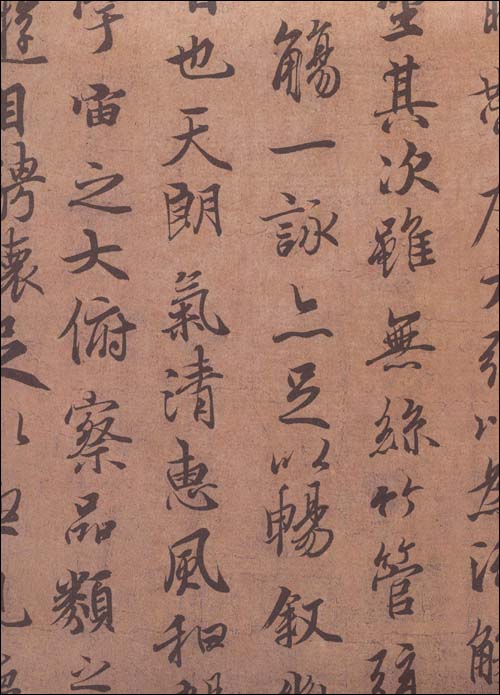 帶左右引以為流觴
坐其次雖無絲竹管弦
觴一詠亦足以暢敘
也天朗氣清惠風和
宇宙之大俯察品類之
遊目騁懷足以極視